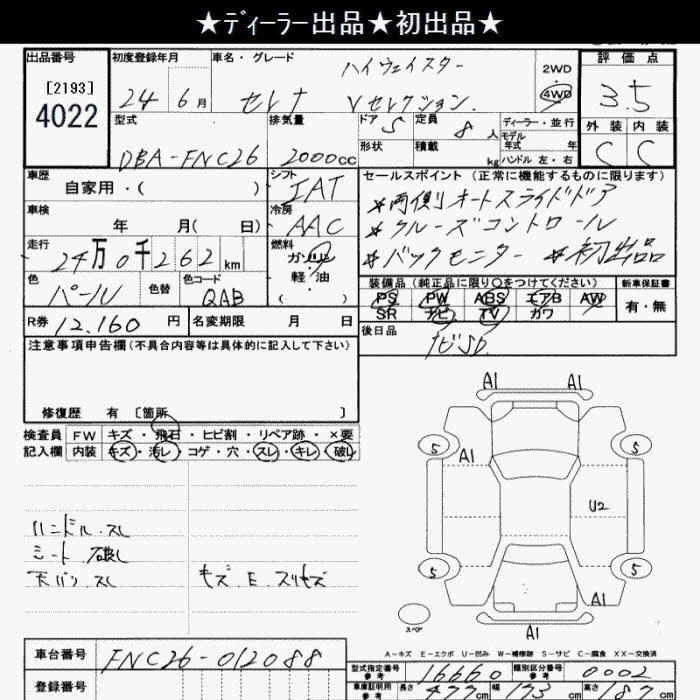 ★ディーラー出品★初出品★
出品番号 初度登録年月 車名・グレード 評価点
[2193]
4022
24 6月
ハイウェイスター
セレナ Vセレクション.
2WD
4WD
3.5
外装 内装
C C
型式 排気量 ドア 5 定員 8人 ディーラー・並行
モデル年式 年
DBA-FNC26 2000cc 形状 積載 kg ハンドル 左・右
車歴 シフト セールスポイント (正常に機能するものに限ります)
自家用・( ) IAT
*両側オートスライドドア
車検 冷房
年 月( 日) AAC
*クルーズコントロール
走行 燃料
24万0千262km ガソリン
軽・油
( )
*バックモニター *初出品
色 色替 色コード
パール QAB
装備品 (純正品に限り○をつけてください) 新車保証書
PS PW ABS エアB AW 有・無
SR ナビ TV カワ
R券 12,160円 名変期限 月 日
後日品
ナビSD
注意事項申告欄(不具合内容等は具体的に記入して下さい)
修復歴 有 〔箇所 〕
検査員 FW キズ・飛石・ヒビ割・リペア跡・×要
記入欄 内装 キズ・汚レ・コゲ・穴・スレ・キレ・破レ
ハンドル.スレ
シート.破レ
天バリ.スレ キズ.E.スリキズ
A1 A1
5 5
A1
U2
5 5
A1
スペア
A1
A-キズ E-エクボ U-凹み W-補修跡 S-サビ C-腐食 XX-交換済
車台番号 FNC26-012088
型式指定番号 参考 16660 類別区分番号 参考 0002
登録番号
車庫証明用 参考 長さ 477cm 幅 173cm 高さ cm